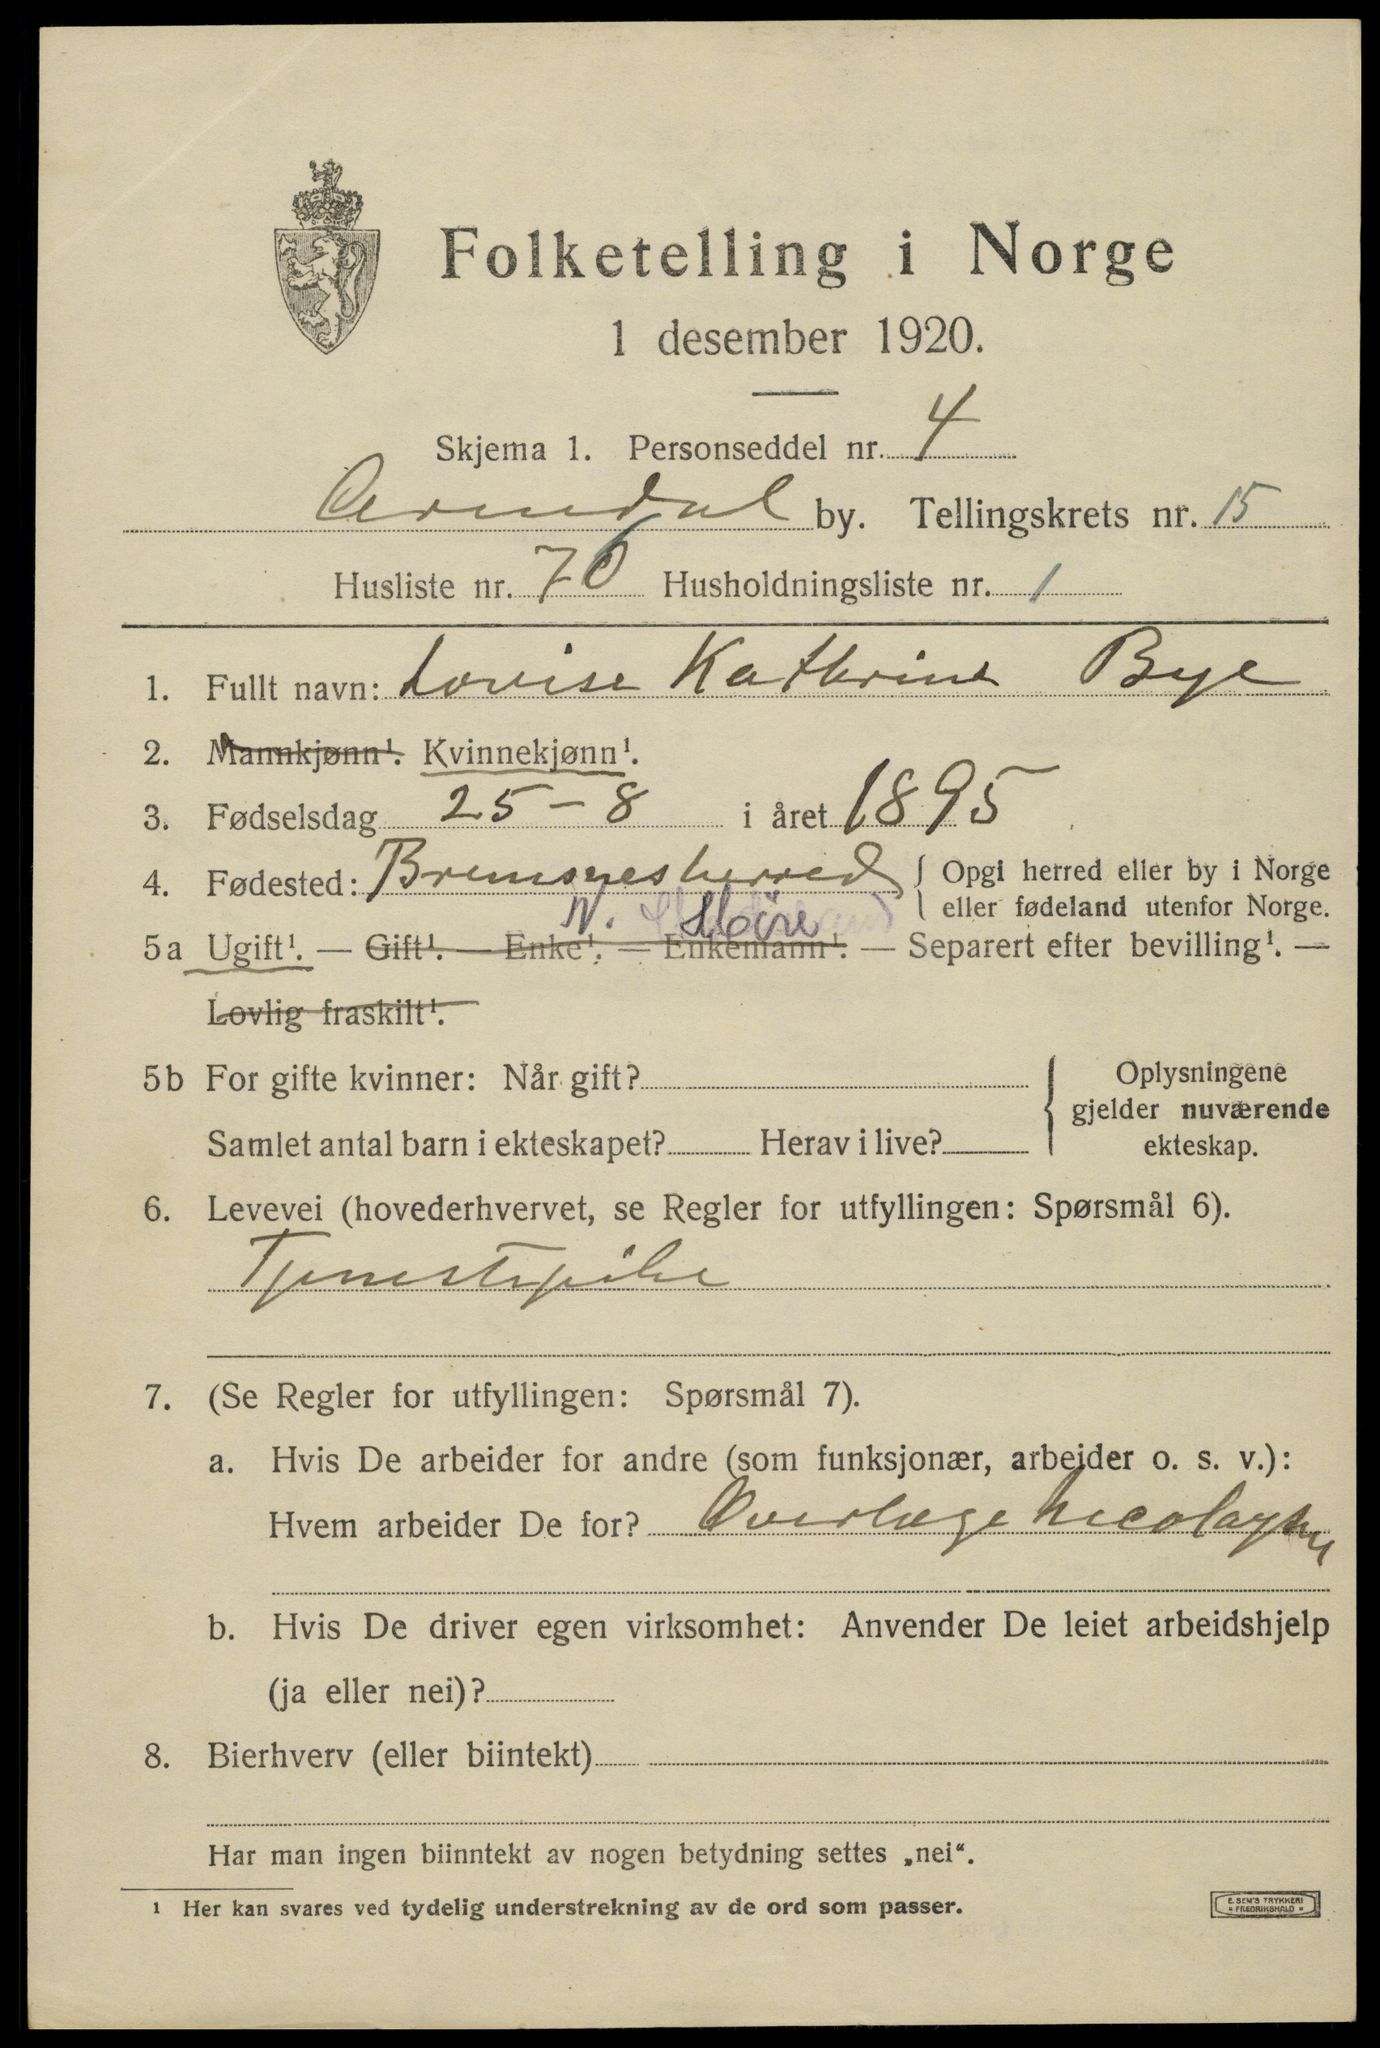 Folketelling i Norge
1 desember 1920.
Skjema 1. Personseddel nr. 4
Arendal by. Tellingskrets nr. 15
Husliste nr. 76 Husholdningsliste nr. 1
1. Fullt navn: Lovise Kathrine Bye
2. Mannkjønn¹. Kvinnekjønn¹.
3. Fødselsdag 25-8 i året 1895
4. Fødested: Bremsnes herred { Opgi herred eller by i Norge
eller fødeland utenfor Norge.
N. Møre
5a Ugift¹. — Gift¹. — Enke¹. — Enkemann¹. — Separert efter bevilling¹. —
Lovlig fraskilt¹.
5b For gifte kvinner: Når gift? { Oplysningene
gjelder nuværende
Samlet antal barn i ekteskapet? Herav i live? ekteskap.
6. Levevei (hovederhvervet, se Regler for utfyllingen: Spørsmål 6).
Tjenestepike
7. (Se Regler for utfyllingen: Spørsmål 7).
a. Hvis De arbeider for andre (som funksjonær, arbeider o. s. v.):
Hvem arbeider De for? Overlæge Nicolaysen
b. Hvis De driver egen virksomhet: Anvender De leiet arbeidshjelp
(ja eller nei)?
8. Bierhverv (eller biintekt)
Har man ingen biinntekt av nogen betydning settes „nei“.
¹ Her kan svares ved tydelig understrekning av de ord som passer.
E. SEM'S TRYKKERI
FREDRIKSHALD